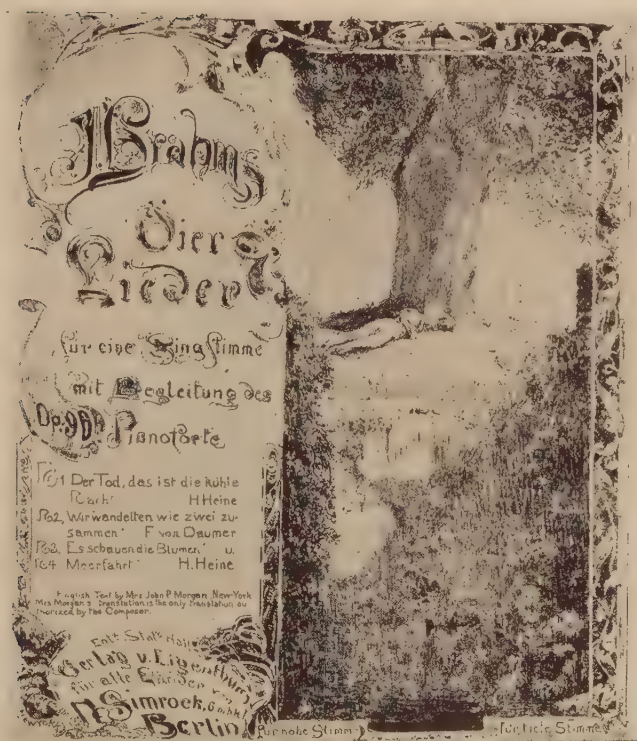 J Brahms
Vier
Lieder
für eine Singstimme
mit Begleitung des
Op. 96 Pianoforte
No 1 Der Tod, das ist die kühle
Nacht H Heine
No 2, Wir wandelten wie zwei zu-
sammen F von Daumer
No 3, Es schauen die Blumen u.
No 4 Meerfahrt H. Heine
English Text by Mrs John P Morgan, New-York
Mrs Morgan's translation is the only translation au
thorized by the Composer.
Entd Statrs Hall
Verlag u. Eigenthum
für alle Länder von
N. Simrock, G.m.b.H.
Berlin
Für hohe Stimme
für tiefe Stimme